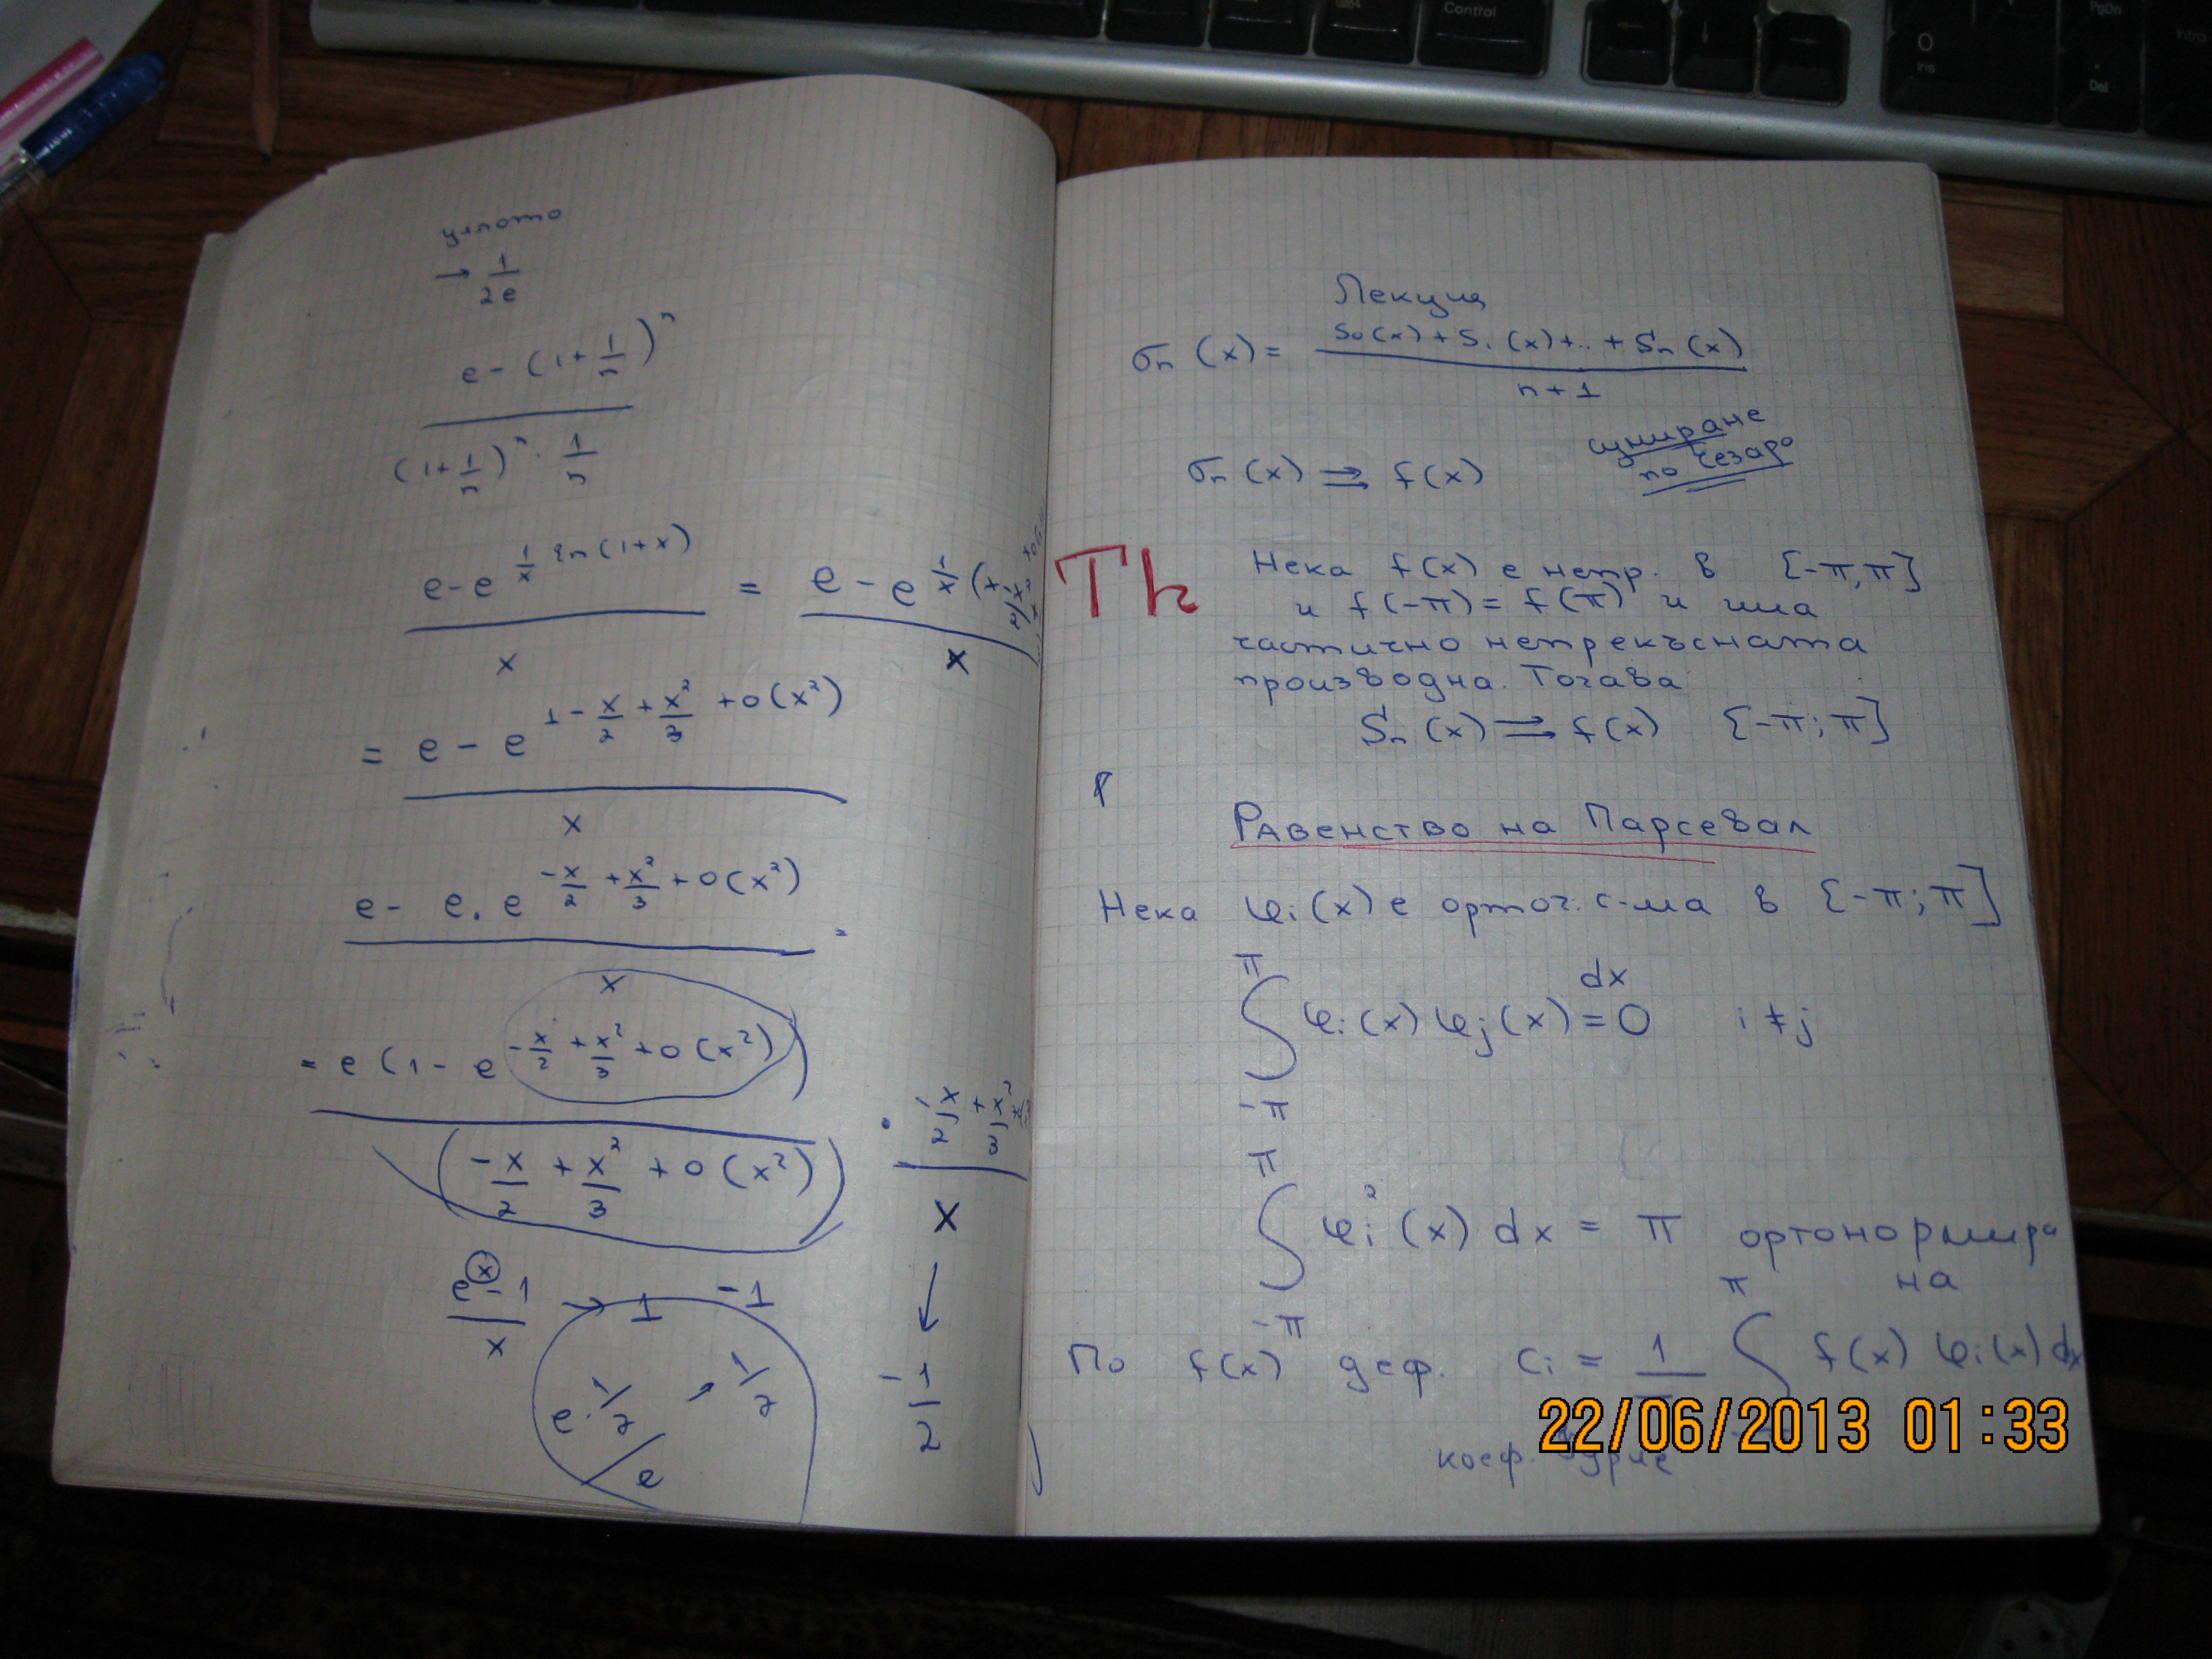 цялото
→ 1/2e
e - (1 + 1/n)^n
(1 + 1/n)^n . 1/n
e - e^(1/x ln(1+x)) = e - e^(1/x (x
x x
= e - e^(1 - x/2 + x²/3 + o(x²))
x
e - e . e^(-x/2 + x²/3 + o(x²)) =
x
= e (1 - e^(-x/2 + x²/3 + o(x²)))
(-x/2 + x²/3 + o(x²))
x
(e^x - 1)/x → 1 -1
e . 1/2 → 1/2
e
- 1/2
Лекция
σn (x) = (S0(x) + S1(x) + .. + Sn(x)) / (n + 1)
сумиране
по Чезаро
σn (x) ⇒ f(x)
Th
Нека f(x) е непр. в [-π, π]
и f(-π) = f(π) и има
частично непрекъсната
производна. Тогава
Sn (x) ⇒ f(x) [-π; π]
Равенство на Парсевал
Нека φi(x) е ортог. с-ма в [-π; π]
∫ from -π to π φi(x) φj(x) dx = 0 i ≠ j
∫ from -π to π φi²(x) dx = π ортонормира
на
По f(x) деф. ci = 1 ∫ π f(x) φi(x) dx
коеф. Фурие
22/06/2013 01:33
Control
PgDn
0
Ins
.
Del
Intro